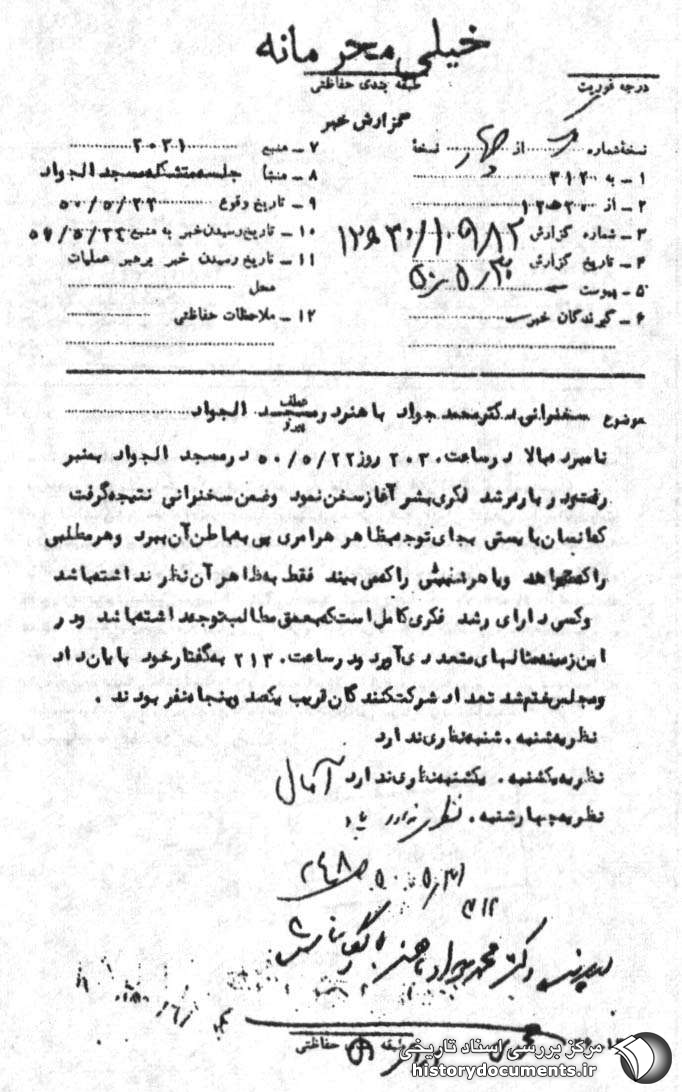 خیلی محرمانه
طبقه بندی حفاظتی
درجه فوریت
گزارش خبر
نسخهٔ شماره یک از چهار نسخهٔ
۱ – به ۳۱۲
۲ – از ۱۲ه۲۰
۳ – شماره گزارش
۴ – تاریخ گزارش
۵ – پیوست
۶ – گیرندگان خبر
۷ – منبع ۲۰۳۱
۸ – منشا جلسه متشکله مسجد الجواد
۹ – تاریخ وقوع ۵۰/۵/۲۲
۱۰ – تاریخ رسیدن خبر به منبع
۱۱ – تاریخ رسیدن خبر برهبر عملیات
محل
۱۲ – ملاحظات حفاظتی
موضوع سخنرانی دکتر محمد جواد باهنر در مسجد الجواد
عطف
پیرو
نامبرده بالا در ساعت ۲۰۳۰ روز ۵۰/۵/۲۲ در مسجد الجواد بمنبر
رفته و درباره رشد فکری بشر آغاز سخن نمود وضمن سخنرانی نتیجه گرفت
که انسان بایستی بجای توجه بظاهر هر امری پی به باطن آن ببرد وهر مطلبی
را که میخواهد ویا هر را که می بیند فقط به ظاهر آن نظر نداشته باشد
وکسی دارای رشد فکری کامل است که بعمق مطالب توجه داشته باشد ودر
این زمینه مثالهای متعددی آورد ودر ساعت ۲۱۳۰ به گفتار خود پایان داد
ومجلس ختم شد تعداد شرکت کنندگان قریب یکصد وپنجاه نفر بودند .
نظریه شنبه . شنبه نظری ندارد
نظریه یکشنبه . یکشنبه نظری ندارد آمال
نظریه چهارشنبه . نظری ندارد
۳۱۲
دکتر محمد جواد باهنر
طبقه حفاظتی
مرکز بررسی اسناد تاریخی
historydocuments.ir